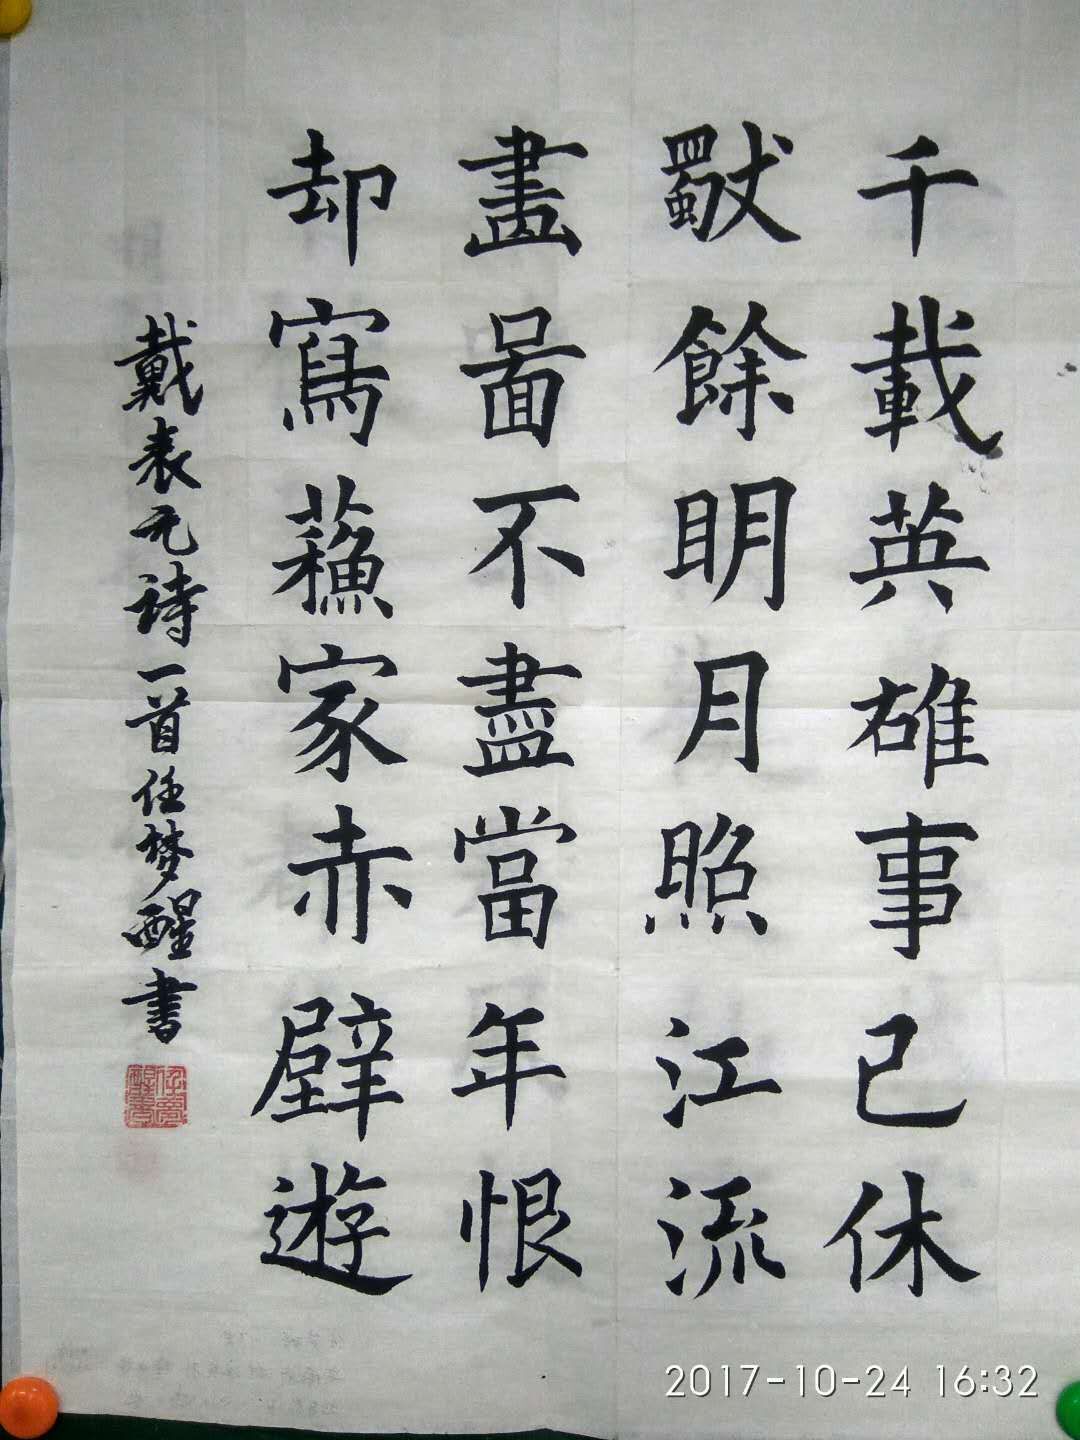 千載英雄事已休
獨餘眀月照江流
畫啚不盡當年恨
却寫蘓家赤壁遊
戴表元诗一首任梦醒書
2017-10-24 16:32